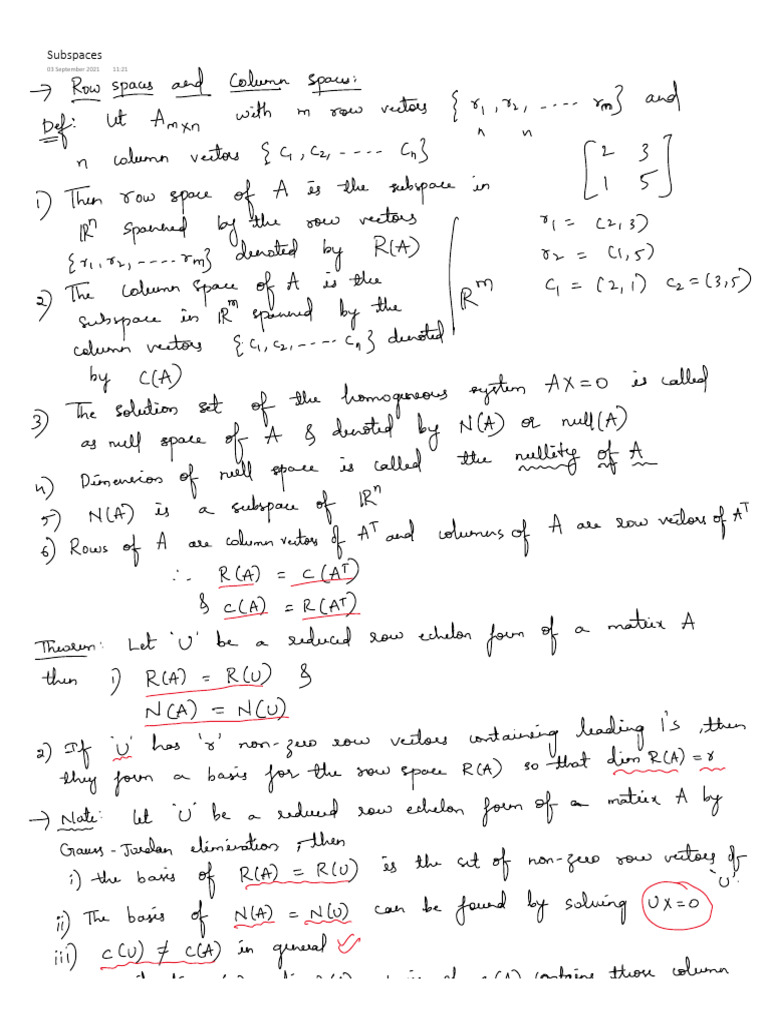 Subspaces
03 September 2021 11:21
→ Row spaces and Column spaces:
Def: Let Amxn with m row vectors {r1, r2, .... rm} and
n n
n column vectors {c1, c2, ----- cn}
[2 3
1 5]
1) Then row space of A is the subspace in
Rⁿ spanned by the row vectors
{r1, r2, ----- rm} denoted by R(A)
r1 = (2,3)
r2 = (1,5)
c1 = (2,1) c2 = (3,5)
Rᵐ
2) The column space of A is the
subspace in Rᵐ spanned by the
column vectors {c1, c2, ---- cn} denoted
by C(A)
3) The solution set of the homogeneous system AX=0 is called
as null space of A & denoted by N(A) or null(A)
4) Dimension of null space is called the nullity of A
5) N(A) is a subspace of Rⁿ
6) Rows of A are column vectors of Aᵀ and columns of A are row vectors of Aᵀ
∴ R(A) = C(Aᵀ)
& C(A) = R(Aᵀ)
Theorem: Let 'U' be a reduced row echelon form of a matrix A
then 1) R(A) = R(U) &
N(A) = N(U)
2) If 'U' has 'r' non-zero row vectors containing leading 1's, then
they form a basis for the row space R(A) so that dim R(A) = r
→ Note: Let 'U' be a reduced row echelon form of a matrix A by
Gauss-Jordan elimination, then
i) the basis of R(A) = R(U) is the set of non-zero row vectors of
'U'.
ii) The basis of N(A) = N(U) can be found by solving UX=0
iii) C(U) ≠ C(A) in general
contains those column